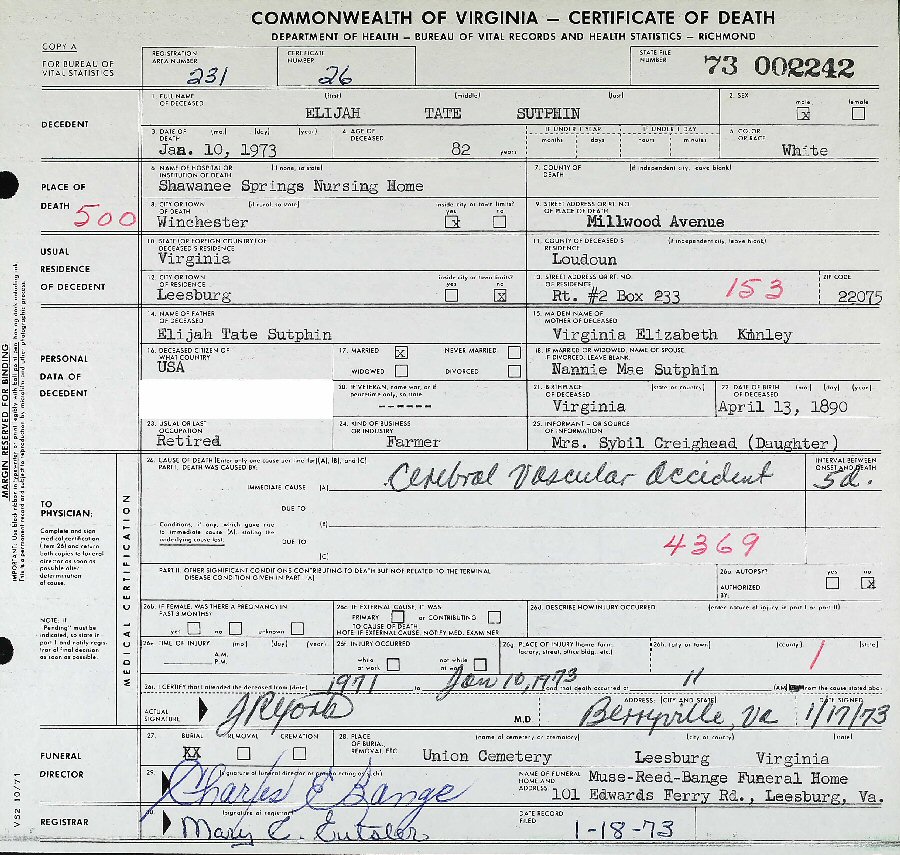 COMMONWEALTH OF VIRGINIA — CERTIFICATE OF DEATH
DEPARTMENT OF HEALTH — BUREAU OF VITAL RECORDS AND HEALTH STATISTICS — RICHMOND
COPY A
FOR BUREAU OF VITAL STATISTICS
REGISTRATION AREA NUMBER 231
CERTIFICATE NUMBER 26
STATE FILE NUMBER 73 002242
DECEDENT
1. FULL NAME OF DECEASED (first) (middle) (last)
ELIJAH TATE SUTPHIN
2. SEX male x female
3. DATE OF DEATH (mo.) (day) (year)
Jan. 10, 1973
4. AGE OF DECEASED 82 years
IF UNDER 1 YEAR months days
IF UNDER 1 DAY hours minutes
5. COLOR OR RACE White
PLACE OF DEATH
500
6. NAME OF HOSPITAL OR INSTITUTION OF DEATH (if none, so state)
Shawanee Springs Nursing Home
7. COUNTY OF DEATH (if independent city, leave blank)
8. CITY OR TOWN OF DEATH (if rural, so state)
Winchester
inside city or town limits? yes x no
9. STREET ADDRESS OR RT. NO. OF PLACE OF DEATH
Millwood Avenue
USUAL RESIDENCE OF DECEDENT
10. STATE (OR FOREIGN COUNTRY) OF DECEASED'S RESIDENCE
Virginia
11. COUNTY OF DECEASED'S RESIDENCE (if independent city, leave blank)
Loudoun
12. CITY OR TOWN OF RESIDENCE
Leesburg
inside city or town limits? yes no x
13. STREET ADDRESS OR RT. NO. OF RESIDENCE
Rt. #2 Box 233
153
ZIP CODE 22075
PERSONAL DATA OF DECEDENT
14. NAME OF FATHER OF DECEASED
Elijah Tate Sutphin
15. MAIDEN NAME OF MOTHER OF DECEASED
Virginia Elizabeth Kinley
16. DECEASED CITIZEN OF WHAT COUNTRY
USA
17. MARRIED x NEVER MARRIED
WIDOWED DIVORCED
18. IF MARRIED OR WIDOWED, NAME OF SPOUSE IF DIVORCED, LEAVE BLANK
Nannie Mae Sutphin
20. IF VETERAN, name war, or if peacetime only, so state
------
21. BIRTHPLACE (state or country)
Virginia
22. DATE OF BIRTH OF DECEASED (mo.) (day) (year)
April 13, 1890
23. USUAL OR LAST OCCUPATION
Retired
24. KIND OF BUSINESS OR INDUSTRY
Farmer
25. INFORMANT – OR SOURCE OF INFORMATION
Mrs. Sybil Creighead (Daughter)
MARGIN RESERVED FOR BINDING
TO PHYSICIAN:
Complete and sign medical certification (item 26) and return both copies to funeral director as soon as possible after determination of cause.
NOTE: If "Pending" must be indicated, so state in part I and notify registrar of final decision as soon as possible.
MEDICAL CERTIFICATION
26. CAUSE OF DEATH (Enter only one cause per line for (A), (B), and (C))
PART I. DEATH WAS CAUSED BY:
INTERVAL BETWEEN ONSET AND DEATH
IMMEDIATE CAUSE (A) Cerebral Vascular Accident 5d.
DUE TO
Conditions, if any, which gave rise to immediate cause (A), stating the underlying cause last.
(B)
DUE TO
(C)
4369
PART II. OTHER SIGNIFICANT CONDITIONS CONTRIBUTING TO DEATH BUT NOT RELATED TO THE TERMINAL DISEASE CONDITION GIVEN IN PART I (A)
26a. AUTOPSY? yes no x
AUTHORIZED BY:
26b. IF FEMALE, WAS THERE A PREGNANCY IN PAST 3 MONTHS?
yes no unknown
26c. IF EXTERNAL CAUSE, IT WAS
PRIMARY or CONTRIBUTING
TO CAUSE OF DEATH
NOTE: IF EXTERNAL CAUSE, NOTIFY MED. EXAMINER
26d. DESCRIBE HOW INJURY OCCURRED (enter nature of injury in part I or part II)
26e. TIME OF INJURY (mo.) (day) (year)
A.M.
P.M.
26f. INJURY OCCURRED
while at work not while at work
26g. PLACE OF INJURY (home, farm, factory, street, office bldg., etc.)
26h. (city or town) (county) (state)
1
26i. I CERTIFY that I attended the deceased from (date) 1971 to Jan 10, 1973 and that death occurred at 11 (AM from the cause stated above
ACTUAL SIGNATURE
M.D.
ADDRESS: (CITY AND STATE)
Berryville, Va
DATE SIGNED
1/17/73
FUNERAL DIRECTOR
27. BURIAL XX REMOVAL CREMATION
28. PLACE OF BURIAL, REMOVAL, ETC. (name of cemetery or crematory) (city or county) (state)
Union Cemetery Leesburg Virginia
29. (signature of funeral director or person acting as such)
Charles E Bange
NAME OF FUNERAL HOME AND ADDRESS
Muse-Reed-Bange Funeral Home
101 Edwards Ferry Rd., Leesburg, Va.
REGISTRAR
30. (signature of registrar)
Mary C. Eutsler
DATE RECORD FILED
1-18-73
VS2 10/71